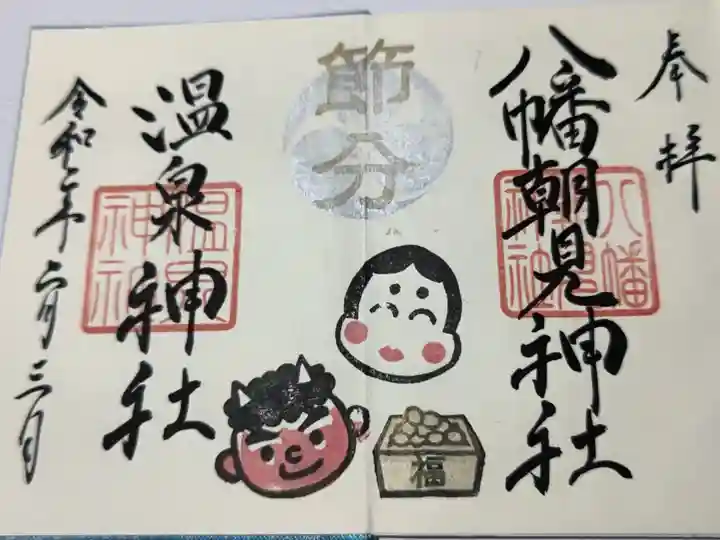 奉拝
八幡朝見神社
八幡朝見神社
節分
福
温泉神社
温泉神社
令和二年二月三日